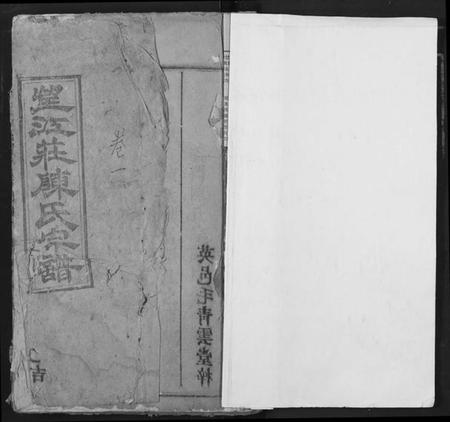 江莊陳氏宗譜
卷一
吉
英邑毛青雲堂梓